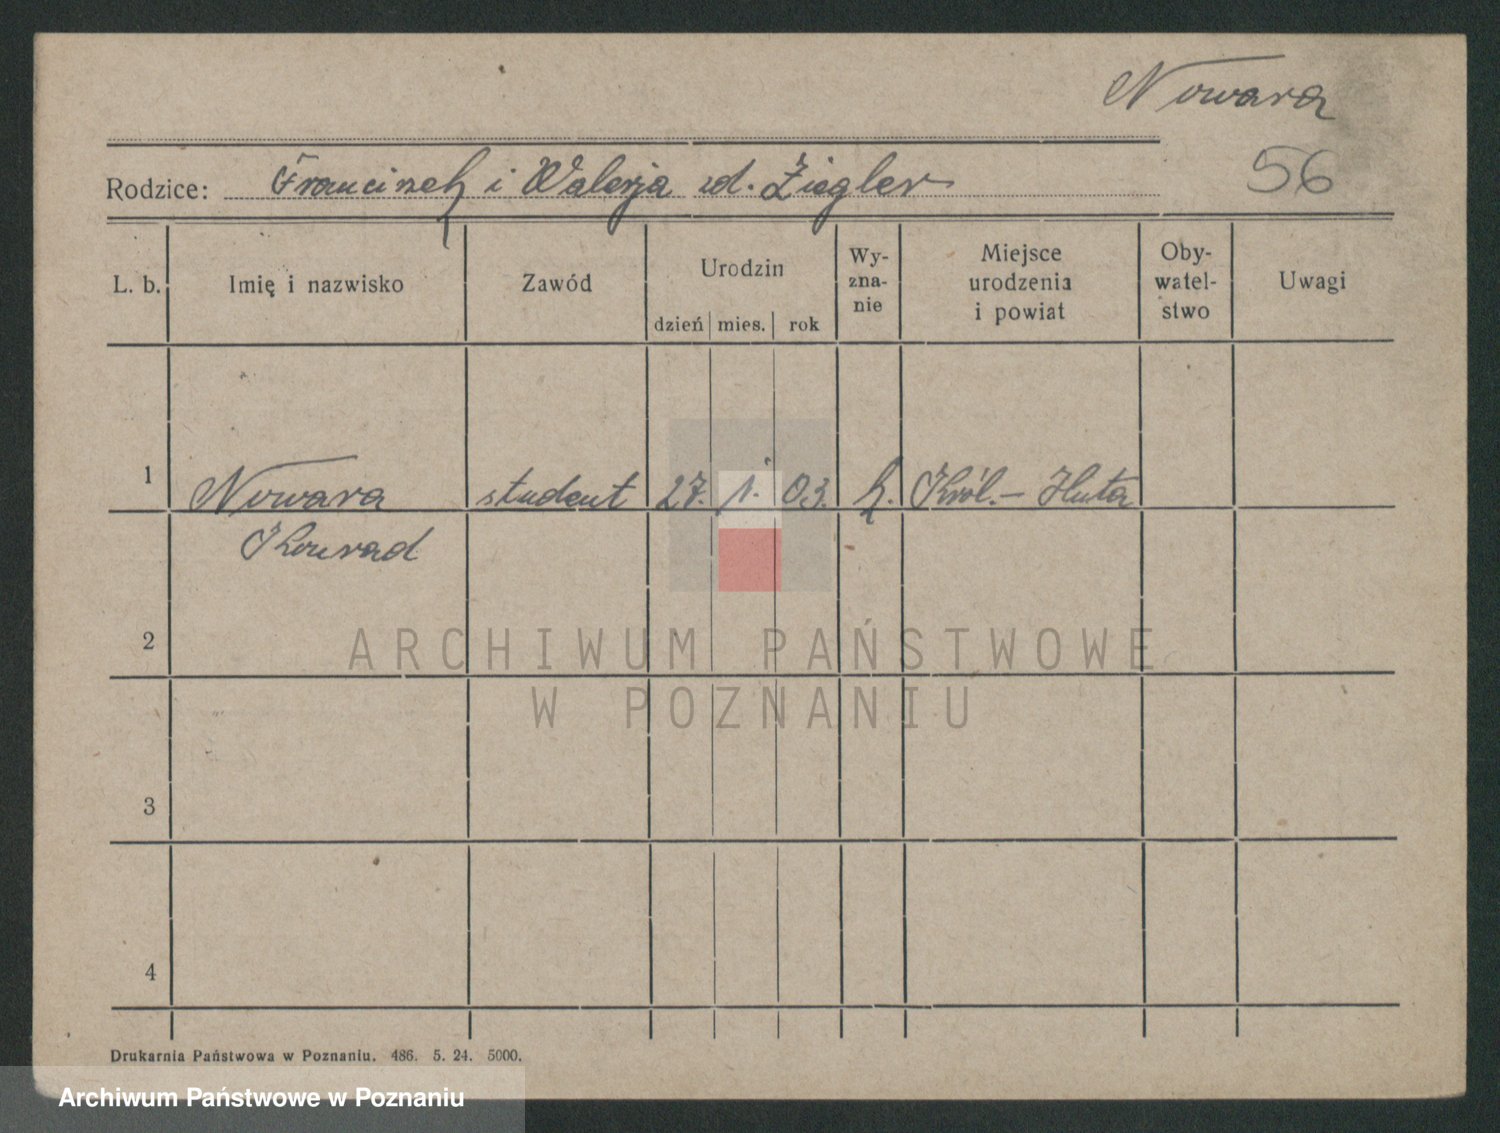 Nowara
Rodzice: Franciszek i Walerja zd. Ziegler
56
L. b. Imię i nazwisko Zawód Urodzin Wy- zna- nie Miejsce urodzenia i powiat Oby- watel- stwo Uwagi
dzień mies. rok
1 Nowara student 27. 1. 03. k. Król.- Huta
Konrad
2
ARCHIWUM PAŃSTWOWE
W POZNANIU
3
4
Drukarnia Państwowa w Poznaniu. 486. 5. 24. 5000.
Archiwum Państwowe w Poznaniu